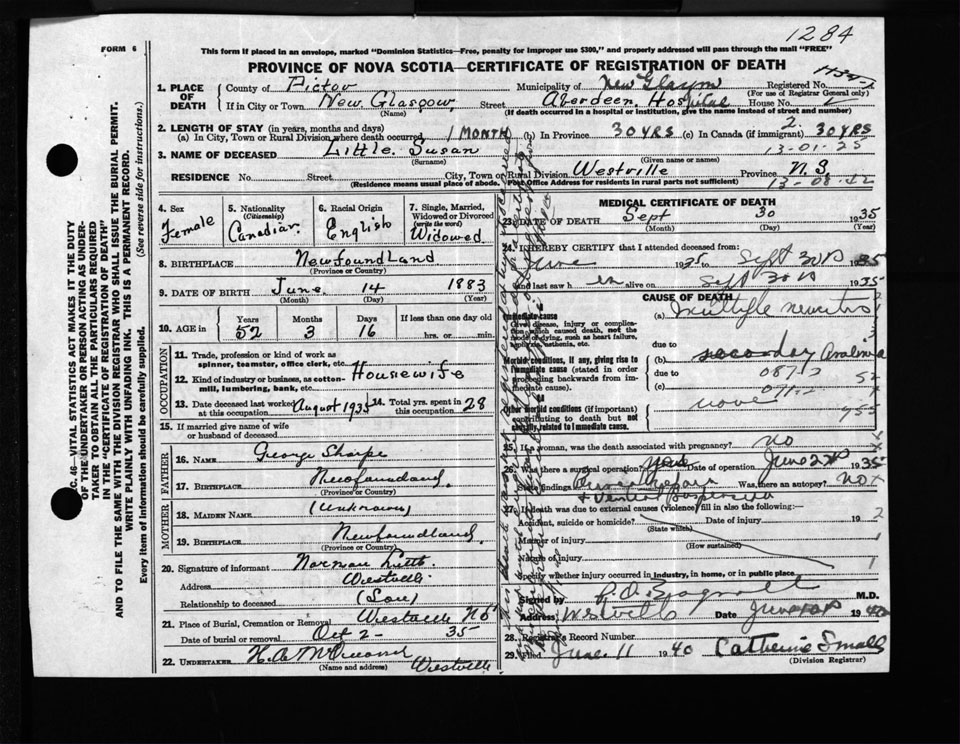 1284
FORM 6
This form if placed in an envelope, marked "Dominion Statistics—Free, penalty for improper use $300," and properly addressed will pass through the mail "FREE"
PROVINCE OF NOVA SCOTIA—CERTIFICATE OF REGISTRATION OF DEATH
1. PLACE OF DEATH
County of Pictou
Municipality of New
Registered No.
(For use of Registrar General only)
If in City or Town New Glasgow
(Name)
Street Aberdeen Hospital House No.
(If death occurred in a hospital or institution, give the name instead of street and number)
2. LENGTH OF STAY (in years, months and days)
(a) In City, Town or Rural Division where death occurred 1 MONTH (b) In Province 30 YRS (c) In Canada (if immigrant) 30 YRS
2.
13-01-25
3. NAME OF DECEASED Little Susan
(Surname) (Given name or names)
RESIDENCE No. Street City, Town or Rural Division Westville Province N.S.
(Residence means usual place of abode. Post Office Address for residents in rural parts not sufficient)
13-08-42
4. Sex
Female
5. Nationality
(Citizenship)
Canadian
6. Racial Origin
English
7. Single, Married, Widowed or Divorced
(write the word)
Widowed
8. BIRTHPLACE Newfoundland
(Province or Country)
9. DATE OF BIRTH June 14 1883
(Month) (Day) (Year)
10. AGE in
Years Months Days If less than one day old
52 3 16 hrs. or min.
OCCUPATION
11. Trade, profession or kind of work as spinner, teamster, office clerk, etc.
Housewife
12. Kind of industry or business, as cotton-mill, lumbering, bank, etc.
13. Date deceased last worked at this occupation August 1935
14. Total yrs. spent in this occupation 28
15. If married give name of wife or husband of deceased
FATHER
16. NAME George Sharpe
17. BIRTHPLACE Newfoundland
(Province or Country)
MOTHER
18. MAIDEN NAME (Unknown)
19. BIRTHPLACE Newfoundland
(Province or Country)
20. Signature of informant Norman Little
Address Westville
Relationship to deceased (Son)
21. Place of Burial, Cremation or Removal Westville NS
Date of burial or removal Oct 2- 35
22. UNDERTAKER
Westville
(Name and address)
MEDICAL CERTIFICATE OF DEATH
23. DATE OF DEATH Sept 30 1935
(Month) (Day) (Year)
24. I HEREBY CERTIFY that I attended deceased from:
June 1935 to Sept 30 1935
and last saw h er alive on Sept 30 1935
CAUSE OF DEATH
Immediate cause
Give disease, injury or complication which caused death, not the mode of dying, such as heart failure, asphyxia, asthenia, etc.
(a) Multiple
due to
Morbid conditions, if any, giving rise to immediate cause (stated in order proceeding backwards from immediate cause).
(b) secondary
due to
(c)
Other morbid conditions (important) contributing to death but not causally related to immediate cause.
none
25. If a woman, was the death associated with pregnancy? no
26. Was there a surgical operation? Date of operation June 1935
State findings Was there an autopsy? No
27. If death was due to external causes (violence) fill in also the following:—
Accident, suicide or homicide? Date of injury 19
(State which)
Manner of injury
(How sustained)
Nature of injury
Specify whether injury occurred in industry, in home, or in public place
Signed by M.D.
Address Westville Date June 1940
28. Registrar's Record Number
29. Filed June 11 1940 Catherine Small
(Division Registrar)
C. 46—VITAL STATISTICS ACT MAKES IT THE DUTY OF THE UNDERTAKER OR PERSON ACTING AS UNDERTAKER TO OBTAIN ALL THE PARTICULARS REQUIRED IN THE "CERTIFICATE OF REGISTRATION OF DEATH"
AND TO FILE THE SAME WITH THE DIVISION REGISTRAR WHO SHALL ISSUE THE BURIAL PERMIT.
WRITE PLAINLY WITH UNFADING INK. THIS IS A PERMANENT RECORD.
Every item of information should be carefully supplied. (See reverse side for instructions.)